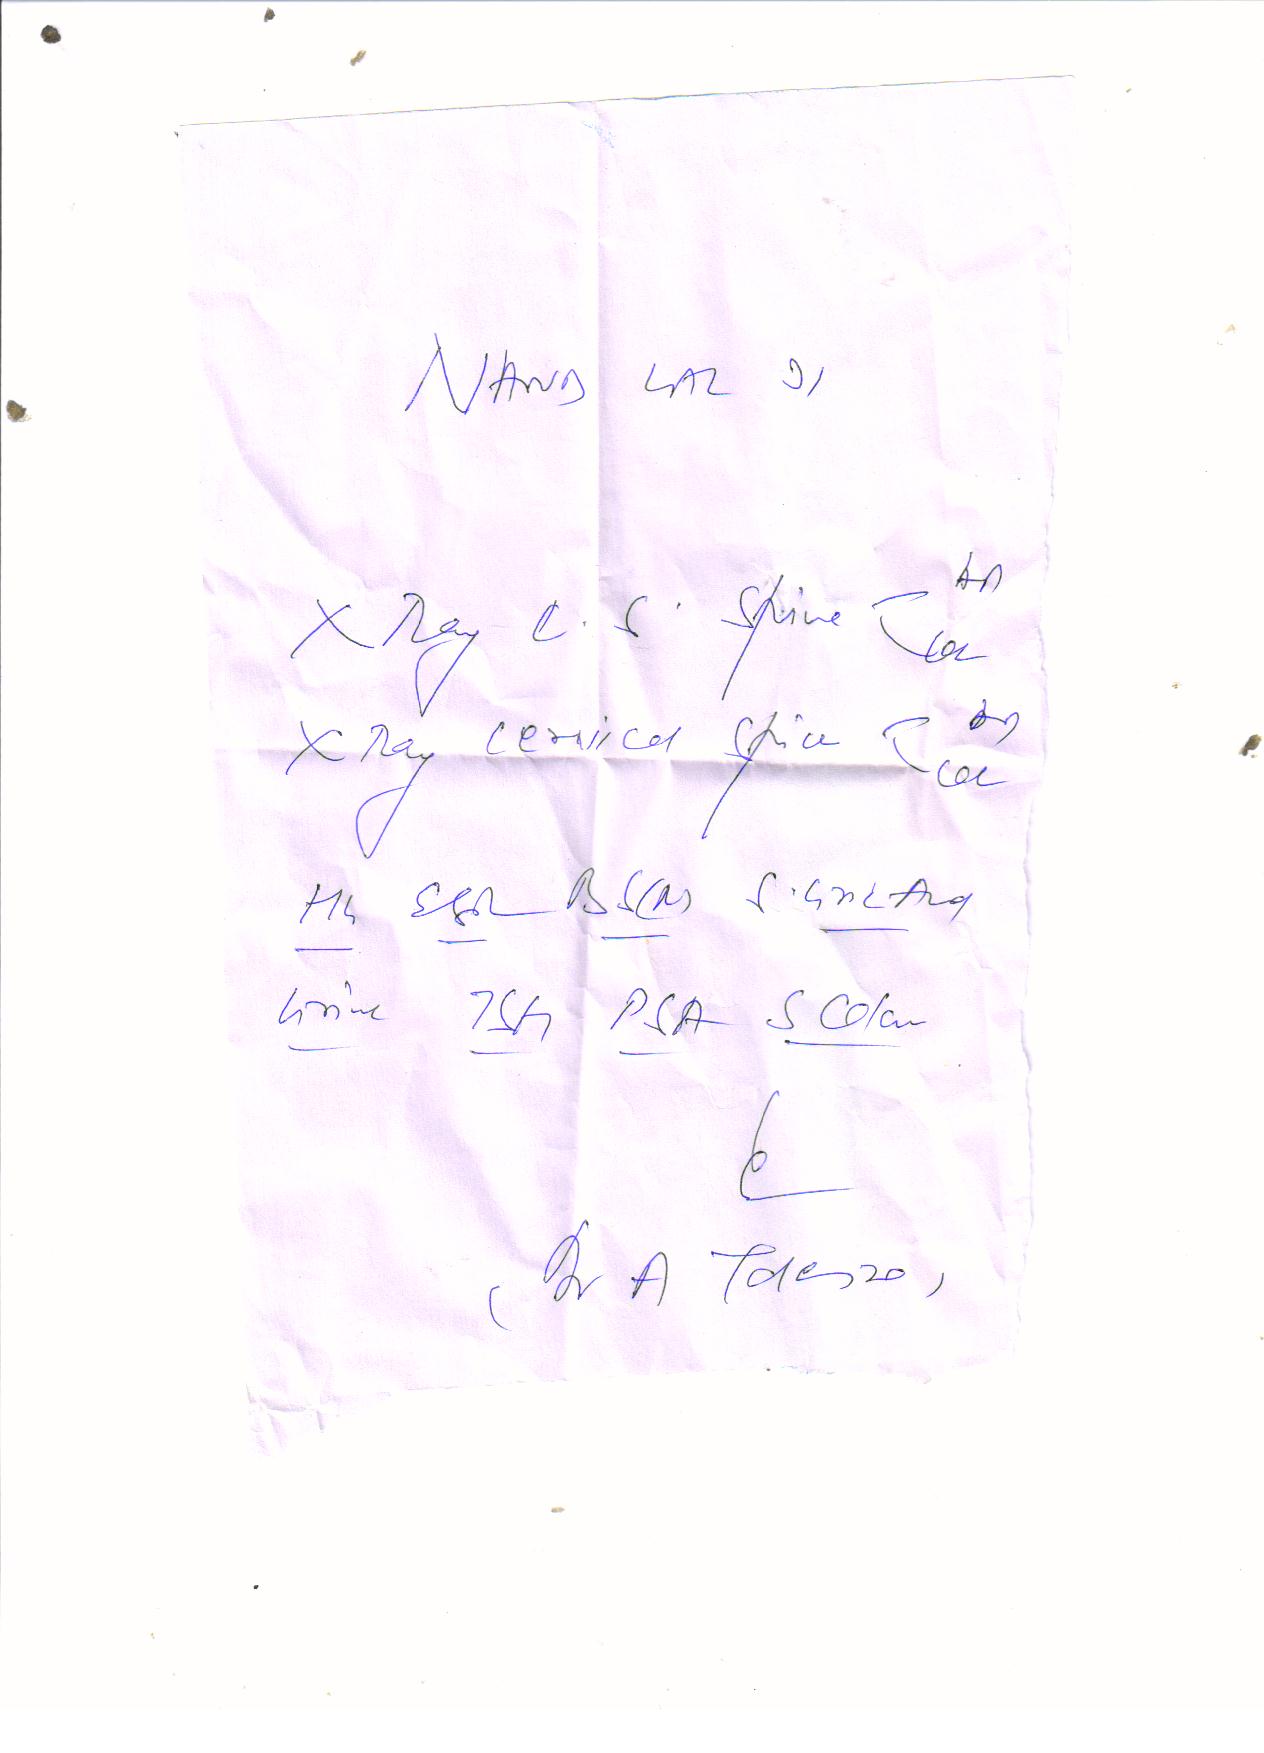 NAND LAL JI
X Ray L.S. Spine AP
Lat
X Ray Cervical Spine AP
Lat
Hb ESR BS(R) S. Uric Acid
Urine TSH PSA S
(Dr A